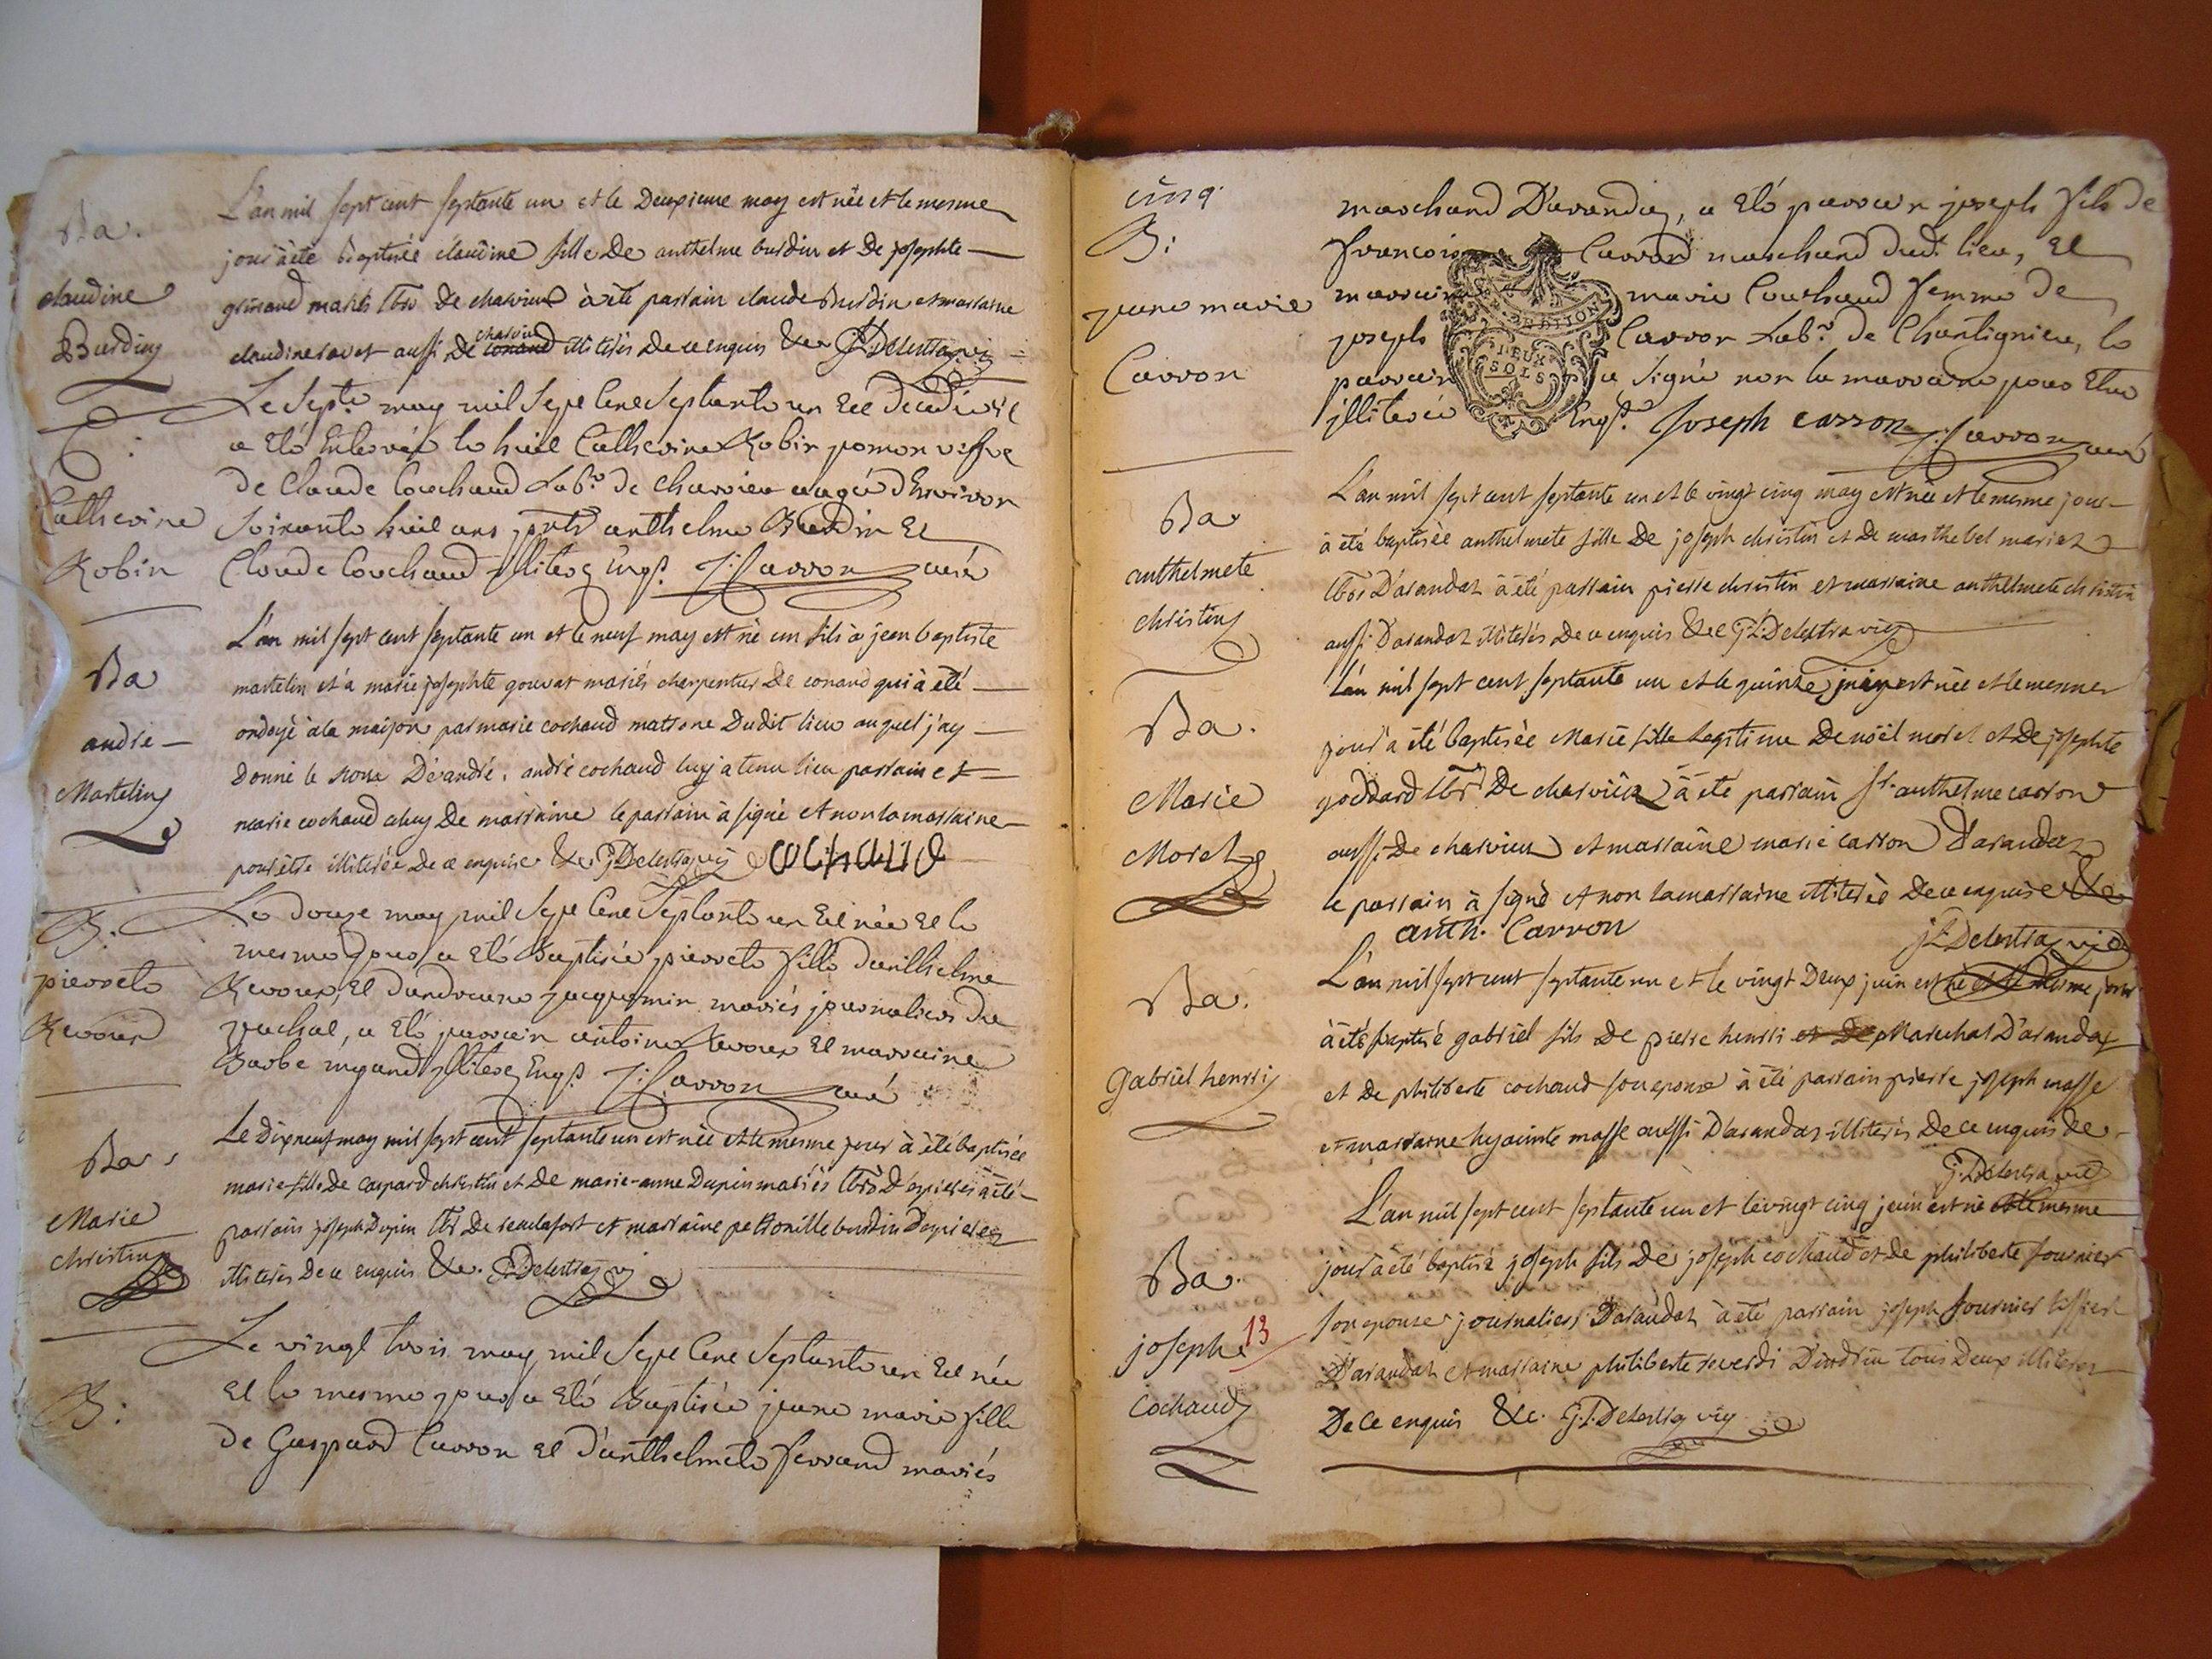 Ba.
claudine
Burdin
L'an mil sept cent septante un et le Deuxieme may est née et le mesme
jour à été baptisée claudine fille De anthelme burdin et De josephte
grinand mariés lbrs De charvieux à été parrain claude Burdin et marraine
claudine ravet aussi De charvieux conand illiterés De ce enquis &c JLDelestra vic
S:
Catherine
Robin
Le Sept.e may mil Sept Cent Septante un Est decedée et
a Eté Enterrée le huit Catherine Robin pomon veffve
de Claude Couchaud Lab.r de Charvieu aagée d'Environ
Soixante huit ans pnts anthelme Burdin Et
Claude Couchaud illiterez Enq.s J: Carron curé
Ba
andré
Martelin
L'an mil sept cent septante un et le neuf may est né un fils à jean baptiste
martelin et à marie josephte gouvat mariés charpentier De conand qui à été
ondoyé à la maison par marie cochaud matrone Dudit lieu auquel j'ay
Donné le nom De andré. andré cochaud luy a tenu lieu parrain et
marie cochaud celuy De marraine le parrain à signé et non la marraine
pour être illiterée De ce enquise &c JLDelestra vic cochaud
B:
pierrete
Revoux
Le douze may mil Sept Cent Septante un Est née Et le
mesme jour a Eté Baptisée pierrete fille d'anthelme
Revoux, Et d'andreane jacquemin mariés journaliers du
juchal, a Eté parrain antoine Revoux Et marraine
Barbe mygand illiterez Enq.s J: Carron curé
Ba.
Marie
christin
Le Dixneuf may mil sept cent septante un est née et le mesme jour à été baptisée
marie fille De Caspard christin et De marie-anne Dupin mariés lbrs D'opieres à été
parrain joseph Dupin lbr De montafort et marraine petronille burdin D'opieres
illiterés De ce enquis &c. JLDelestra vic
B:
Le vingt trois may mil Sept Cent Septante un Est née
Et le mesme jour a Eté Baptisée jeane marie fille
de Gaspard Carron Et d'anthelmete ferrand mariés
cinq.
B:
jeane marie
Carron
marchand D'arandaz, a Eté parrain joseph fils de
francois Carron marchand dud. lieu, Et
marraine marie Couchaud femme de
joseph Carron Lab.r de Chantignieu, le
parrain a signé non la marraine pour Etre
illiterée Enq.s Joseph carron J: Carron curé
DEUX
SOLS
Ba
anthelmete
christin
L'an mil sept cent septante un et le vingt cinq may est née et le mesme jour
à été baptisée anthelmete fille De joseph christin et De marthe bel mariez
lbrs D'arandaz à été parrain pierre christin et marraine anthelmete christin
aussi D'arandaz illiterés De ce enquis &c JLDelestra vic
Ba.
Marie
Morel
L'an mil sept cent septante un et le quinze juin est née et le mesme
jour à été baptisée Marie fille legitime De noël morel et De josephte
goddard lbrs De charvieux à été parrain Sr. anthelme carron
aussi De charvieux et marraine marie carron D'arandaz
le parrain à signé et non la marraine illiterée De ce enquise &c
anth. Carron JLDelestra vic
Ba.
Gabriel henrri
L'an mil sept cent septante un et le vingt Deux juin est né et le mesme jour
à été baptisé gabriel fils De pierre henrri et De Marechal D'arandaz
et De philiberte cochaud son epouse à été parrain pierre joseph masse
et marraine hyacinte masse aussi D'arandaz illiterés De ce enquis &c
JLDelestra vic
Ba.
joseph 13
Cochaud
L'an mil sept cent septante un et le vingt cinq juin est né et le mesme
jour à été baptisé joseph fils De joseph cochaud et de philiberte fournier
son epouse journaliers D'arandaz à été parrain joseph fournier tissier
D'arandaz et marraine philiberte reverdi D'indrieu tous Deux illiteres
De ce enquis &c. J.L.Delestra vic